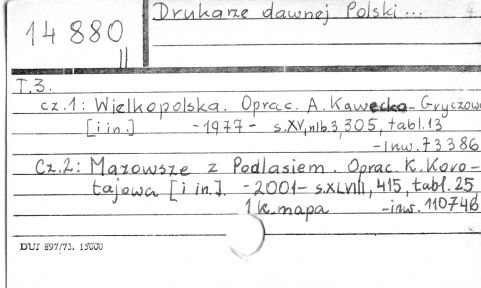 Drukarze dawnej Polski... 4.
14 880
II
T.3.
cz.1: Wielkopolska. Oprac. A. Kawecka-Gryczowa
[i in.] -1977- s.XV, nlb 3, 305, tabl.13
-inw.73386
Cz.2: Mazowsze z Podlasiem. Oprac. K. Koro-
tajowa [i in.]. -2001- s.XLVIII, 415, tabl. 25,
1 k. mapa -inw. 110746
DUJ 897/73. 15000